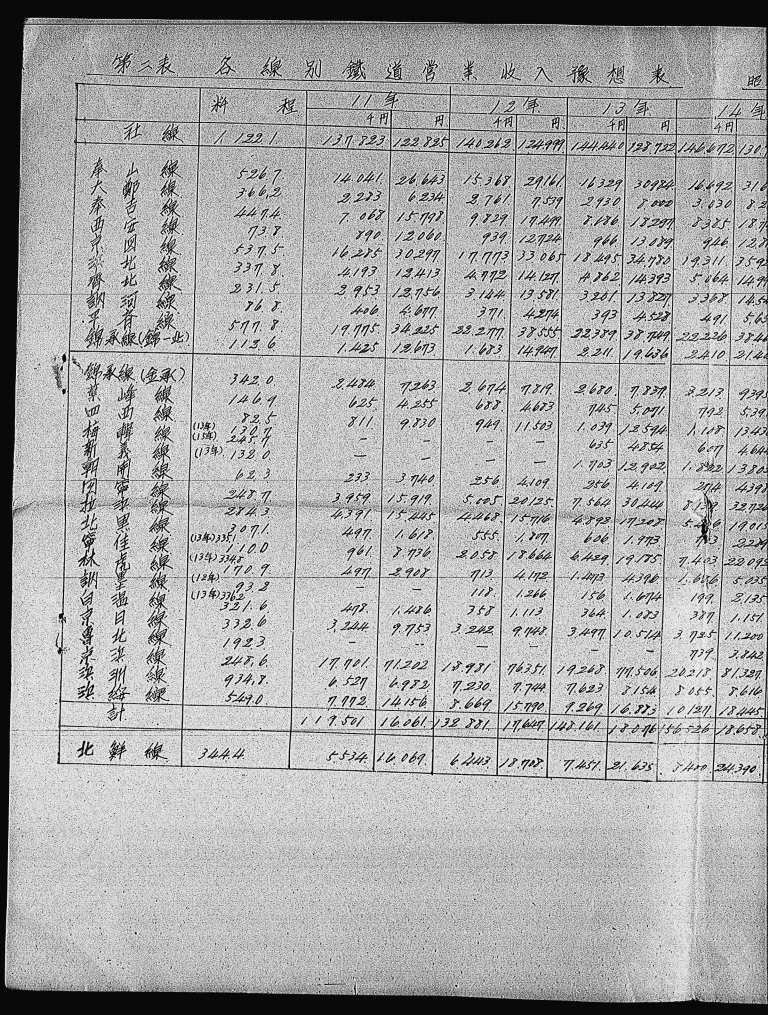 第二表 各線別鐵道営業收入豫想表 昭
料程 11年 12年 13年 14年
千円 円 千円 円 千円 円 千円
社線 1.122.1 137.823 122.825 140.262 124.999 144.440 128.722 146.672 130.
奉山線 526.7 14.041 26.643 15.368 29.161 16.329 30.984 16.692 31.6
大鄭線 366.2 2.283 6.234 2.761 7.539 2.930 8.000 3.030 8.2
奉吉線 447.4 7.068 15.798 9.829 17.499 8.186 18.297 8.385 18.7
西安線 73.8 890 12.060 939 12.724 966 13.089 946 12.8
京図線 537.5 16.285 30.297 17.773 33.065 18.495 34.780 19.311 35.92
北線 337.8 4.193 12.413 4.772 14.127 4.862 14.393 5.064 14.99
北線 231.5 2.953 12.756 3.144 13.581 3.201 13.827 3.368 14.5
訥河線 86.8 406 4.677 371 4.274 393 4.528 491 5.65
平斉線 577.8 19.775 34.225 22.277 38.555 22.389 38.749 22.226 38.46
錦承線(錦一北) 112.6 1.425 12.673 1.683 14.947 2.211 19.636 2.410 21.4
錦承線(金承) 342.0 2.484 7.263 2.674 7.819 2.680 7.837 3.213 9.395
葉峰線 146.9 625 4.255 688 4.683 745 5.071 792 5.39
四西線 82.5 811 9.830 949 11.503 1.039 12.594 1.108 13.43
梅輯線 (13年) (15年) 245.7 – – – – 635 4.854 607 4.64
新義線 (13年) 132.0 – – – – 1.703 12.902 1.822 13.80
朝開線 62.3 233 3.740 256 4.109 256 4.109 274 4.398
図寧線 248.7 3.959 15.919 5.005 20.125 7.564 30.414 32.72
拉浜線 284.3 4.391 15.445 4.468 15.716 4.892 17.208 19.013
北黒線 307.1 497 1.618 555 1.807 606 1.973
寧佳線 (13年)335.1 110.0 961 8.736 2.058 18.664 6.429 19.185 7.403 22.092
林虎線 (13年)334.8 170.9 497 2.908 713 4.172 1.473 4.396 5.035
訓 線 (12年) 93.2 – – 118 1.266 156 1.674 199 2.135
白温線 (13年)336.2 321.6 478 1.486 358 1.113 364 1.083 387 1.151
京白線 332.6 3.244 9.753 3.242 9.748 3.497 10.514 3.725 11.200
魯北線 192.3 – – – – – – 739 3.842
京浜線 248.6 17.701 71.202 18.981 76.351 19.268 77.506 20.218 81.327
浜洲線 934.8 6.527 6.982 7.230 7.744 7.623 8.154 8.055 8.616
浜綏線 549.0 7.772 14.156 8.669 15.790 9.269 16.883 10.127 18.445
計 119.501 16.061 132.881 17.647 148.161 18.076 156.526 18.658
北鮮線 344.4 5.534 16.069 6.443 18.708 7.451 21.635 8.400 24.390